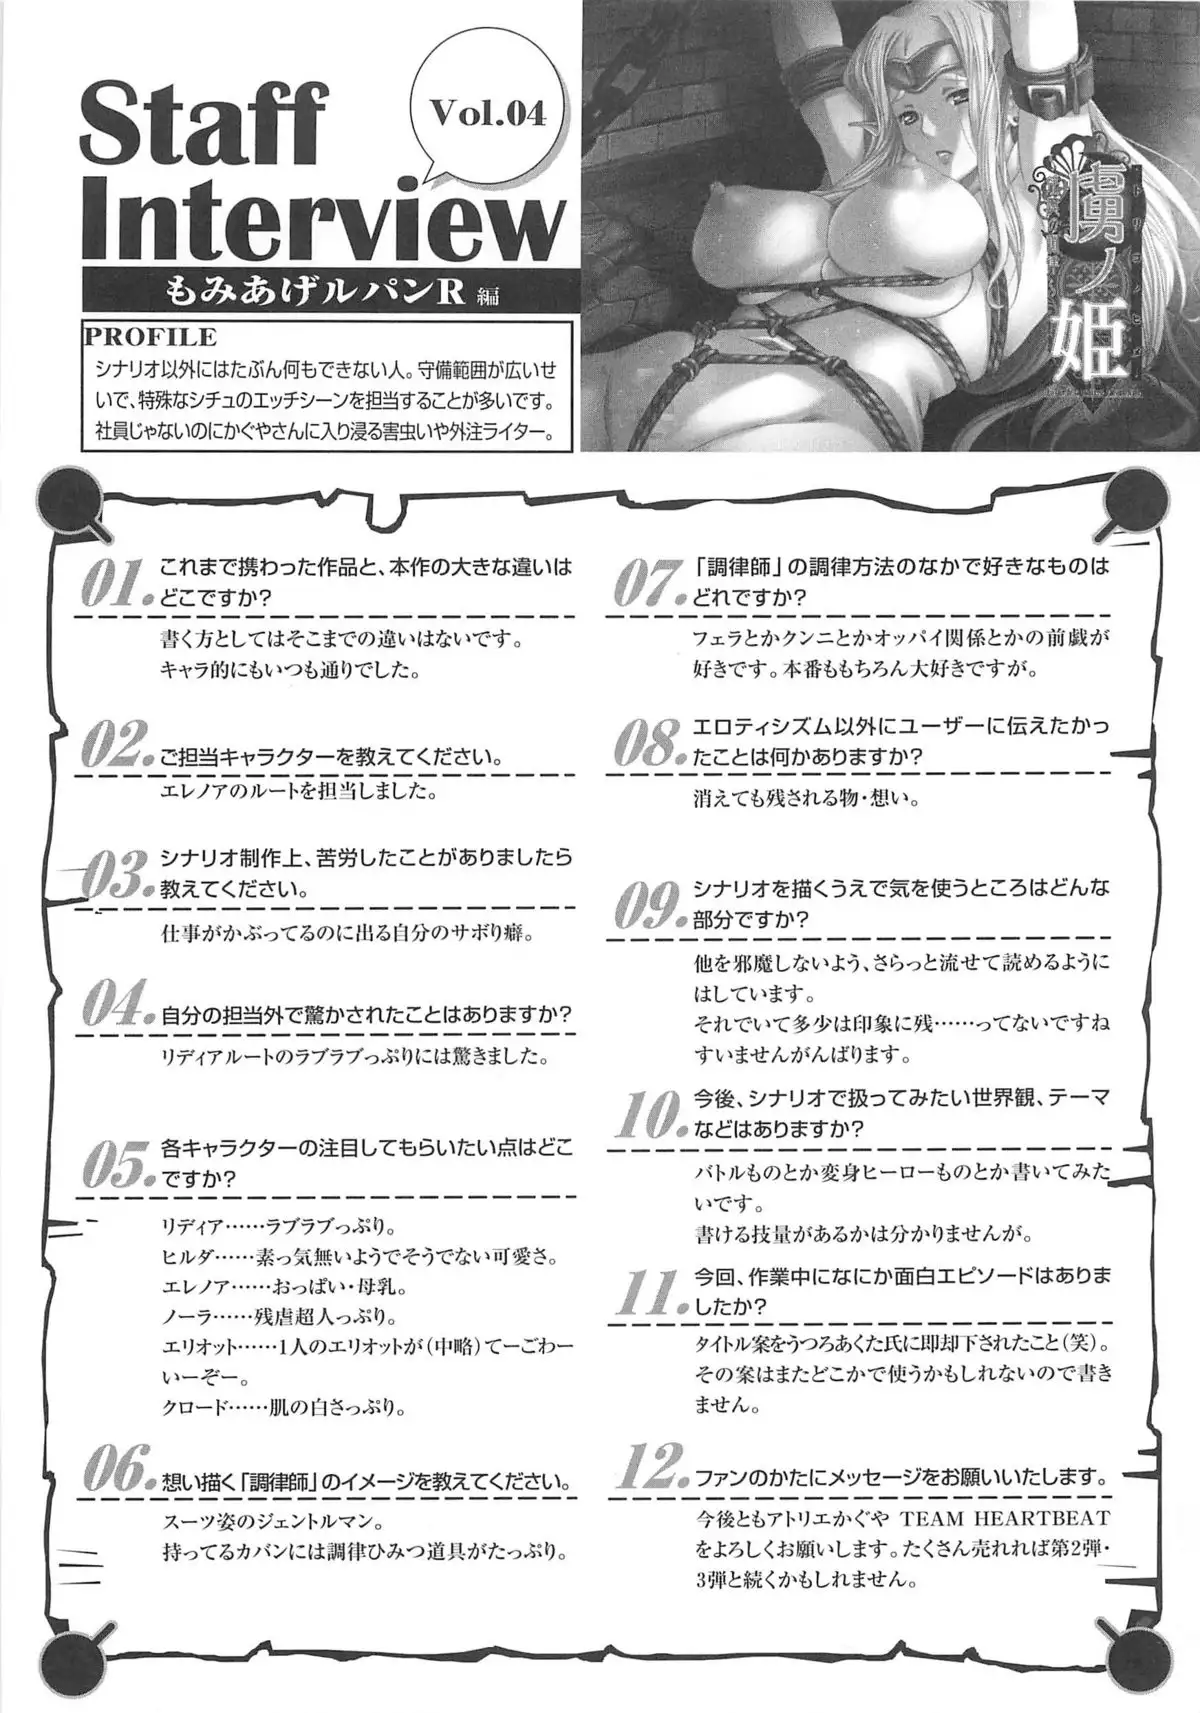 Staff
Interview
Vol.04
もみあげルパンR 編
PROFILE
シナリオ以外にはたぶん何もできない人。守備範囲が広いせ
いで、特殊なシチュのエッチシーンを担当することが多いです。
社員じゃないのにかぐやさんに入り浸る害虫いや外注ライター。
虜ノ姫
トリコノヒメ
01. これまで携わった作品と、本作の大きな違いは
どこですか?
書く方としてはそこまでの違いはないです。
キャラ的にもいつも通りでした。
02. ご担当キャラクターを教えてください。
エレノアのルートを担当しました。
03. シナリオ制作上、苦労したことがありましたら
教えてください。
仕事がかぶってるのに出る自分のサボり癖。
04. 自分の担当外で驚かされたことはありますか?
リディアルートのラブラブっぷりには驚きました。
05. 各キャラクターの注目してもらいたい点はどこ
ですか?
リディア……ラブラブっぷり。
ヒルダ……素っ気無いようでそうでない可愛さ。
エレノア……おっぱい・母乳。
ノーラ……残虐超人っぷり。
エリオット……1人のエリオットが(中略)てーごわー
いーぞー。
クロード……肌の白さっぷり。
06. 想い描く「調律師」のイメージを教えてください。
スーツ姿のジェントルマン。
持ってるカバンには調律ひみつ道具がたっぷり。
07. 「調律師」の調律方法のなかで好きなものは
どれですか?
フェラとかクンニとかオッパイ関係とかの前戯が
好きです。本番ももちろん大好きですが。
08. エロティシズム以外にユーザーに伝えたかっ
たことは何かありますか?
消えても残される物・想い。
09. シナリオを描くうえで気を使うところはどんな
部分ですか?
他を邪魔しないよう、さらっと流せて読めるように
はしています。
それでいて多少は印象に残……ってないですね
すいませんがんばります。
10. 今後、シナリオで扱ってみたい世界観、テーマ
などはありますか?
バトルものとか変身ヒーローものとか書いてみた
いです。
書ける技量があるかは分かりませんが。
11. 今回、作業中になにか面白エピソードはありま
したか?
タイトル案をうつろあくた氏に即却下されたこと(笑)。
その案はまたどこかで使うかもしれないので書き
ません。
12. ファンのかたにメッセージをお願いいたします。
今後ともアトリエかぐや TEAM HEARTBEAT
をよろしくお願いします。たくさん売れれば第2弾・
3弾と続くかもしれません。